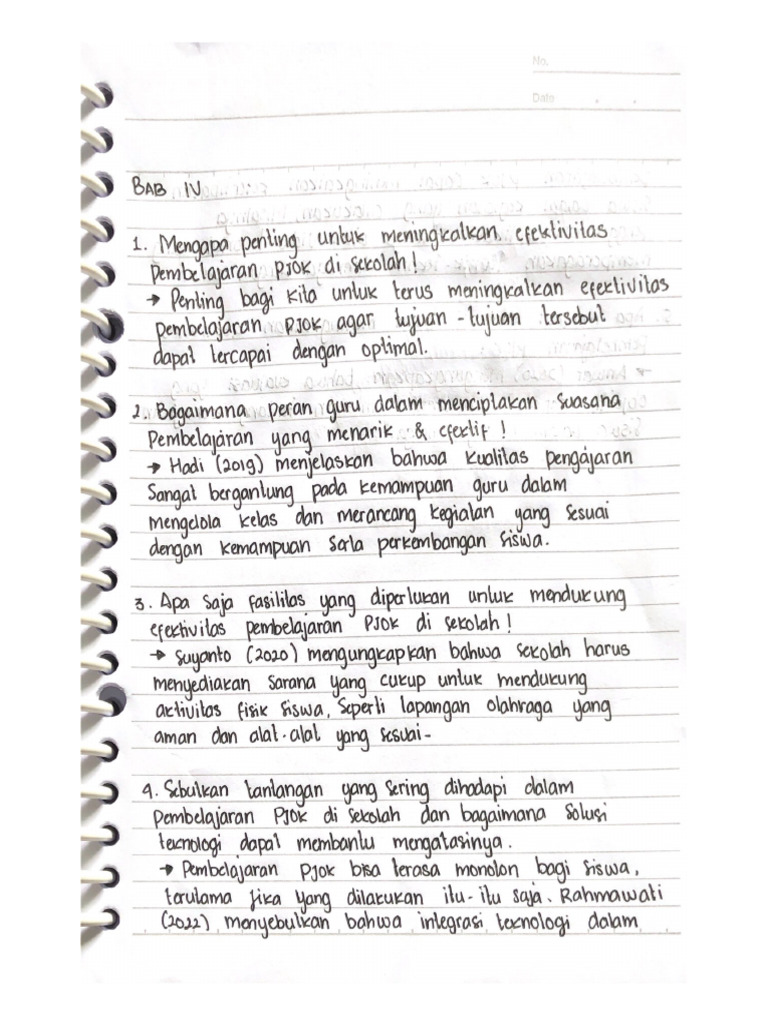 No.
Date
BAB IV
1. Mengapa penting untuk meningkatkan efektivitas
Pembelajaran PJOK di sekolah!
→ Penting bagi kita untuk terus meningkatkan efektivitas
pembelajaran PJOK agar tujuan-tujuan tersebut
dapat tercapai dengan optimal.
2. Bagaimana peran guru dalam menciptakan suasana
Pembelajaran yang menarik & efektif!
→ Hadi (2019) menjelaskan bahwa kualitas pengajaran
Sangat bergantung pada kemampuan guru dalam
mengelola kelas dan merancang kegiatan yang sesuai
dengan kemampuan serta perkembangan siswa.
3. Apa saja fasilitas yang diperlukan untuk mendukung
efektivitas pembelajaran PJOK di sekolah!
→ Suyanto (2020) mengungkapkan bahwa sekolah harus
menyediakan sarana yang cukup untuk mendukung
aktivitas fisik siswa, seperti lapangan olahraga yang
aman dan alat-alat yang sesuai-
4. Sebutkan tantangan yang sering dihadapi dalam
Pembelajaran PJOK di sekolah dan bagaimana solusi
teknologi dapat membantu mengatasinya.
→ Pembelajaran PJOK bisa terasa monoton bagi siswa,
terutama jika yang dilakukan itu-itu saja. Rahmawati
(2022) menyebutkan bahwa integrasi teknologi dalam